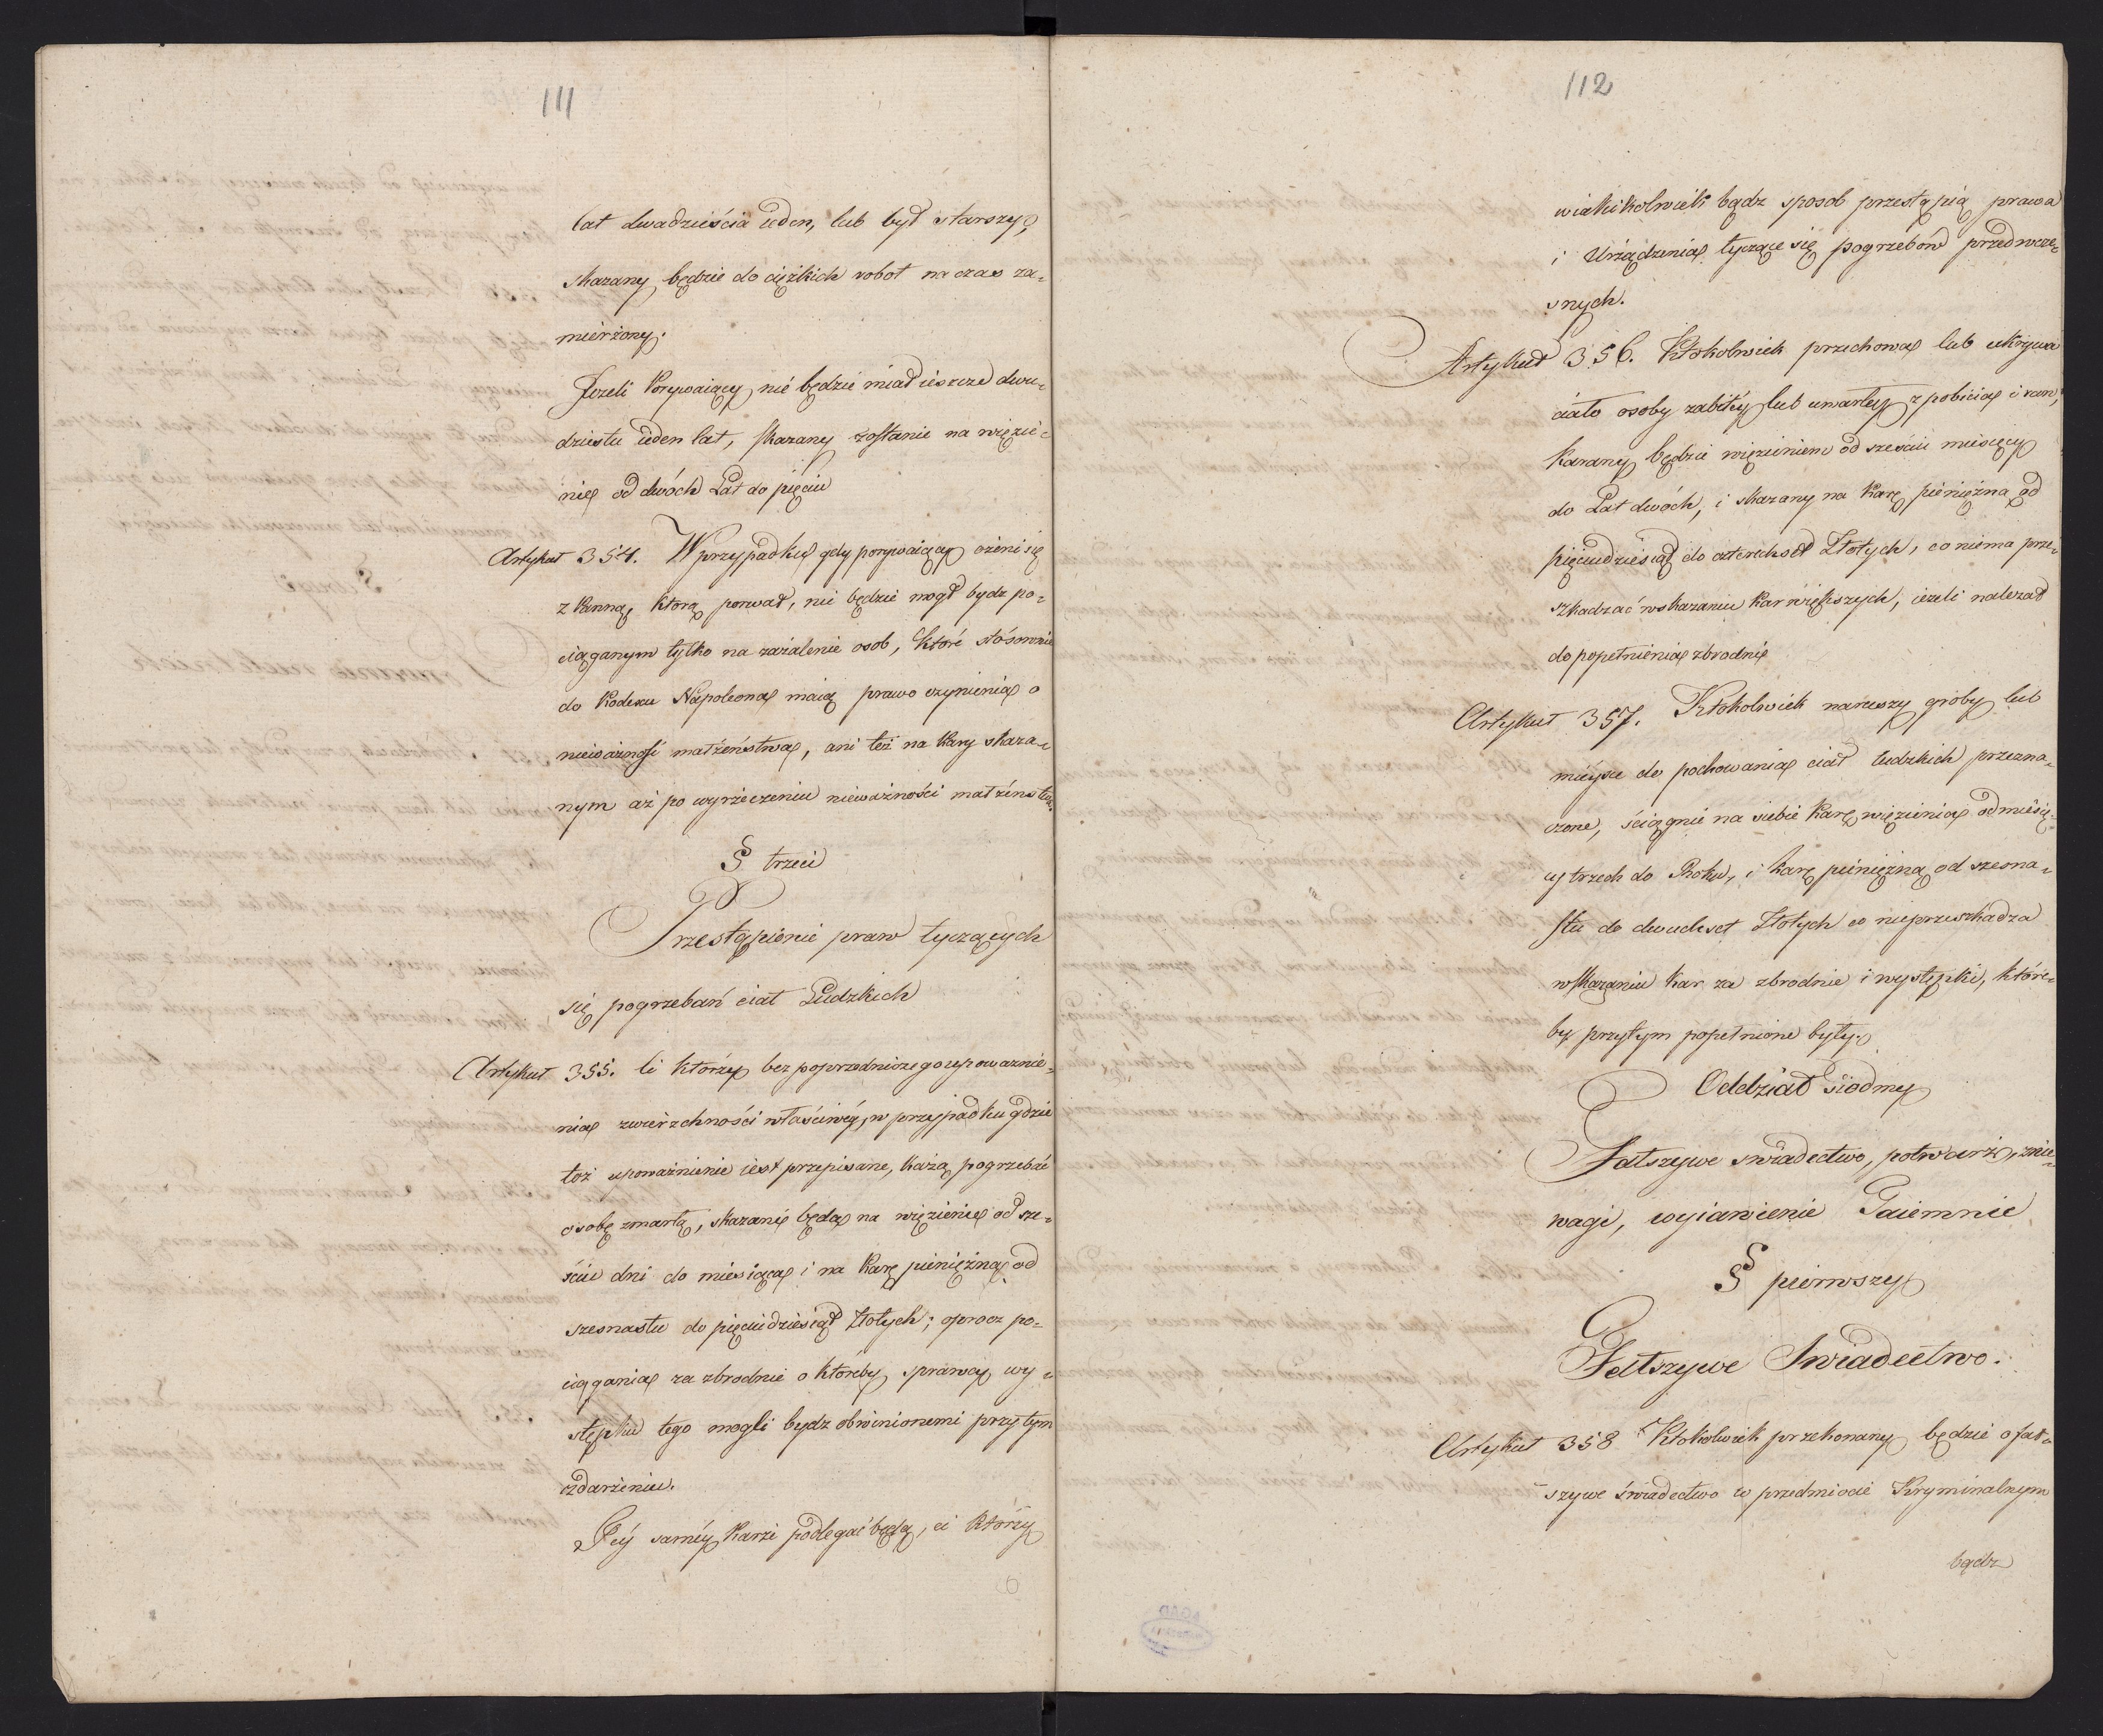 111
lat dwadzieścia ieden, lub był starszy,
skazany będzie do ciężkich robot na czas za-
mierżony.
Jeżeli Porywaiący nié będzié miał ieszcze dwu-
dziestu ieden lat, skazany zostanie na więzié-
nie od dwóch Lat do pięciu
Artykuł 354. W przypadku gdy porywaiący ożeni się
z Panną, którą porwał, nié będzie mógł bydz po-
ciąganym tylko na zażalenie osob, któré stósownie
do Kodexu Napoleona maią prawo czynienia o
nieważność małżeństwa, ani też na kary skaza-
nym aż po wyrzeczeniu nieważności małżeństwa.
§ trzeci
Przestąpienie praw tyczących
się pogrzebań ciał Ludzkich
Artykuł 355. Ci którzy bez poprzedniczego upoważnie-
nia zwierzchności właściwéy, w przypadku gdzie
toż upoważnienie iest przepisane, każą pogrzebać
osobę zmarłą, skazani będą na więzienie od sze-
ściu dni do miesiąca i na karę pieniężną od
szesnastu do pięciudziesiąt Złotych; oprocz po-
ciągania za zbrodnie o któreby sprawcy wy-
stępku tego mogli bydz obwinionemi przy tym
zdarżeniu.
Téy saméy karze podlegać będą, ci którzy
112
wiakikolwiek bądz sposob przestąpią prawa
i Urządzenia tyczące się pogrzebów przedwcze-
snych.
Artykuł 356. Ktokolwiek przechowa lub ukrywa
ciało osoby zabitéy lub umarłey z pobicia i ran,
karany będzie więzieniem od sześciu miesięcy
do Lat dwóch, i skazany na karę pieniężna od
pięciudziesiąt do czterechset Złotych, co niema prze-
szkadzać wskazaniu kar większych, ieżeli należał
do popełnienia zbrodni
Artykuł 357. Ktokolwiek naruszy groby lub
miéysce do pochowania ciał ludzkich przezna-
czone, ściągnie na siebié karę więzienia od miesię-
cy trzech do Roku, i karę pieniężną od szesna-
stu do dwuchset Złotych co nieprzeszkadza
wskazaniu kar za zbrodnie i występki, które-
by przytym popełnione były.
Oddział siodmy
Fałszywe świadectwo, potwarz, znie-
wagi, wyiawienie Taiemnic
§ pierwszy
Fałszywe Swiadectwo.
Artykuł 358 Ktokolwiek przekonany będzie o fał-
szywe świadectwo w przedmiocie Kryminalnym
bądz